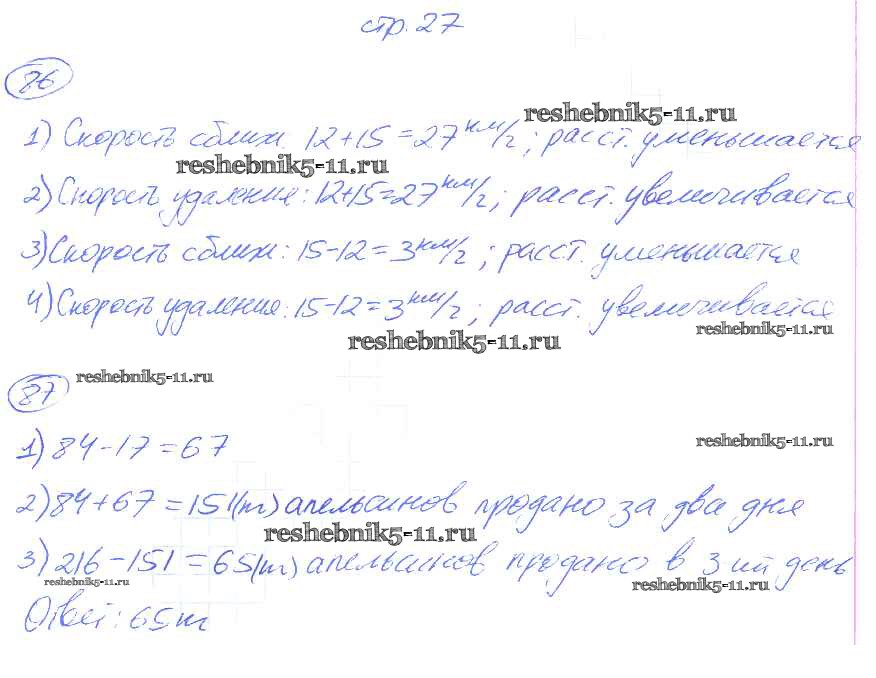 стр. 27
86
reshebnik5-11.ru
1) Скорость сближ. 12+15=27 км/г; расст. уменьшается
reshebnik5-11.ru
2) Скорость удаления: 12+15=27 км/г; расст. увеличивается
3) Скорость сближ: 15-12=3 км/г; расст. уменьшается
4) Скорость удаления: 15-12=3 км/г; расст. увеличивается
reshebnik5-11.ru
reshebnik5-11.ru
87
reshebnik5-11.ru
1) 84-17=67
reshebnik5-11.ru
2) 84+67=151(т) апельсинов продано за два дня
reshebnik5-11.ru
3) 216-151=65(т) апельсинов продано в 3 ий день
reshebnik5-11.ru
reshebnik5-11.ru
Ответ: 65т